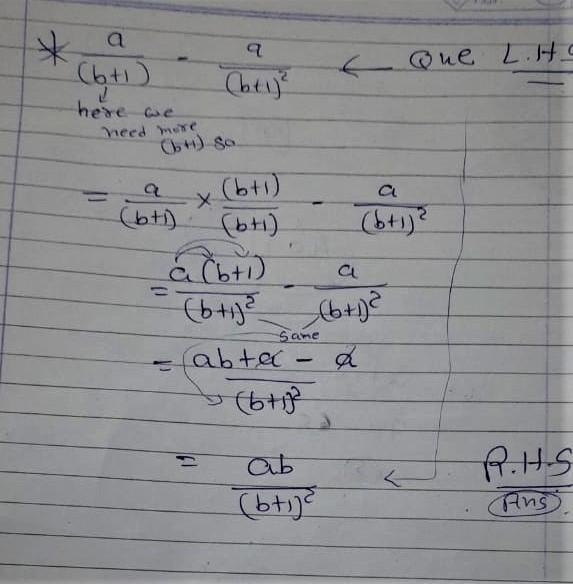 * a/(b+1) - a/(b+1)² ← Que L.H.S
↓
here we
need more
(b+1) so
= a/(b+1) × (b+1)/(b+1) - a/(b+1)²
= a(b+1)/(b+1)² - a/(b+1)²
same
= ab+a - a/(b+1)²
= ab/(b+1)² ← R.H.S
Ans.